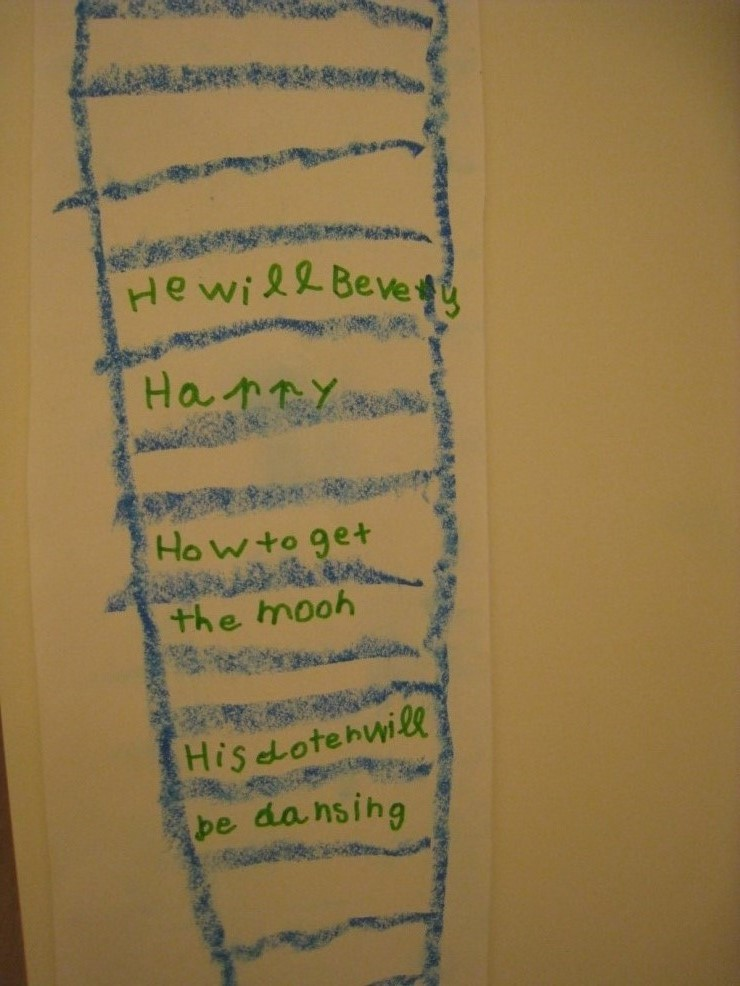 He will Be very
Happy
How to get
the moon
His doter will
be dansing